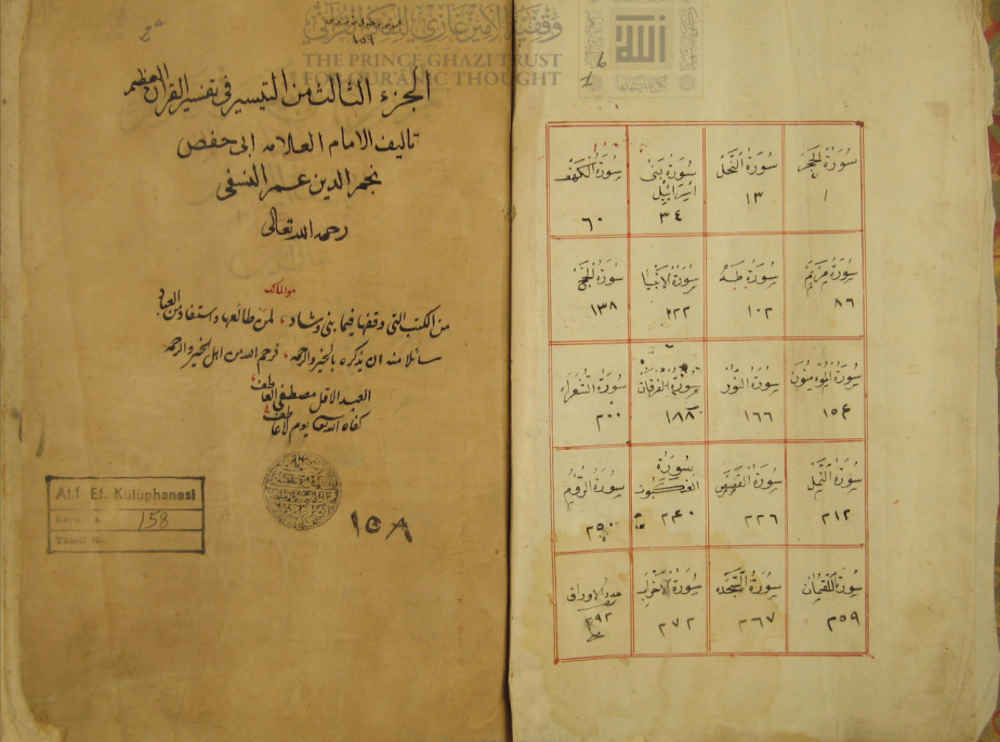 وقفية الأمير غازي للفكر القرآني
THE PRINCE GHAZI TRUST
FOR QUR'ANIC THOUGHT
١٥٩
الجزء الثالث من التيسير في تفسير القران العظيم
تاليف الامام العلامه ابى حفص
نجم الدين عمر النسفى
رحمه الله تعالى
هو المالك
من الكتب التى وقفها فيما بنى وشاد لمن طالعها واستفاد من العباد
سائلا منه ان يذكره بالخير والرحمه فرحم الله من اهل الخير والرحمه
العبد الاقل مصطفى العاطف
كفاه الله يوم لا عاطف
Atıf Ef. Kütüphanesi
158
١٥٨
سورة الحجر
١
سورة النحل
١٣
سورة بنى اسرائيل
٣٤
سورة الكهف
٦٠
سورة مريم
٨٦
سورة طه
١٠٢
سورة الانبيا
١٢٢
سورة الحج
١٣٨
سورة المومنون
١٥٤
سورة النور
١٦٦
سورة الفرقان
١٨٨
سورة الشعراء
٢٠٠
سورة النمل
٢١٢
سورة القصص
٢٢٦
سورة العنكبوت
٢٤٠
سورة الروم
٢٥٠
سورة لقمان
٢٥٩
سورة السجده
٢٦٧
سورة الاحزاب
٢٧٢
عدد الاوراق
٢٩٢